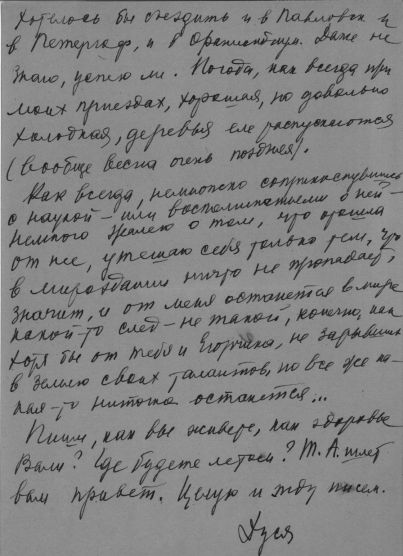 Хотелось бы съездить и в Павловск и
в Петергоф, и в Ораниенбаум. Даже не
знаю, успею ли. Погода, как всегда при
моих приездах, хорошая, но довольно
холодная, деревья еле распускаются
(вообще весна очень поздняя).
Как всегда, немножко соприкоснувшись
с наукой – или воспоминаниями о ней –
немного жалею о том, что отошла
от нее, утешаю себя только тем, что
в мироздании ничто не пропадает,
значит, и от меня останется в мире
какой-то след – не такой, конечно, как
хотя бы от тебя и Егорушка, не зарывших
в землю своих талантов, но все же ка-
кая-то ниточка останется...
Пиши, как вы живете, как здоровье
Вали? Где будете летом? Т. А. шлет
вам привет. Целую и жду писем.
Дуся